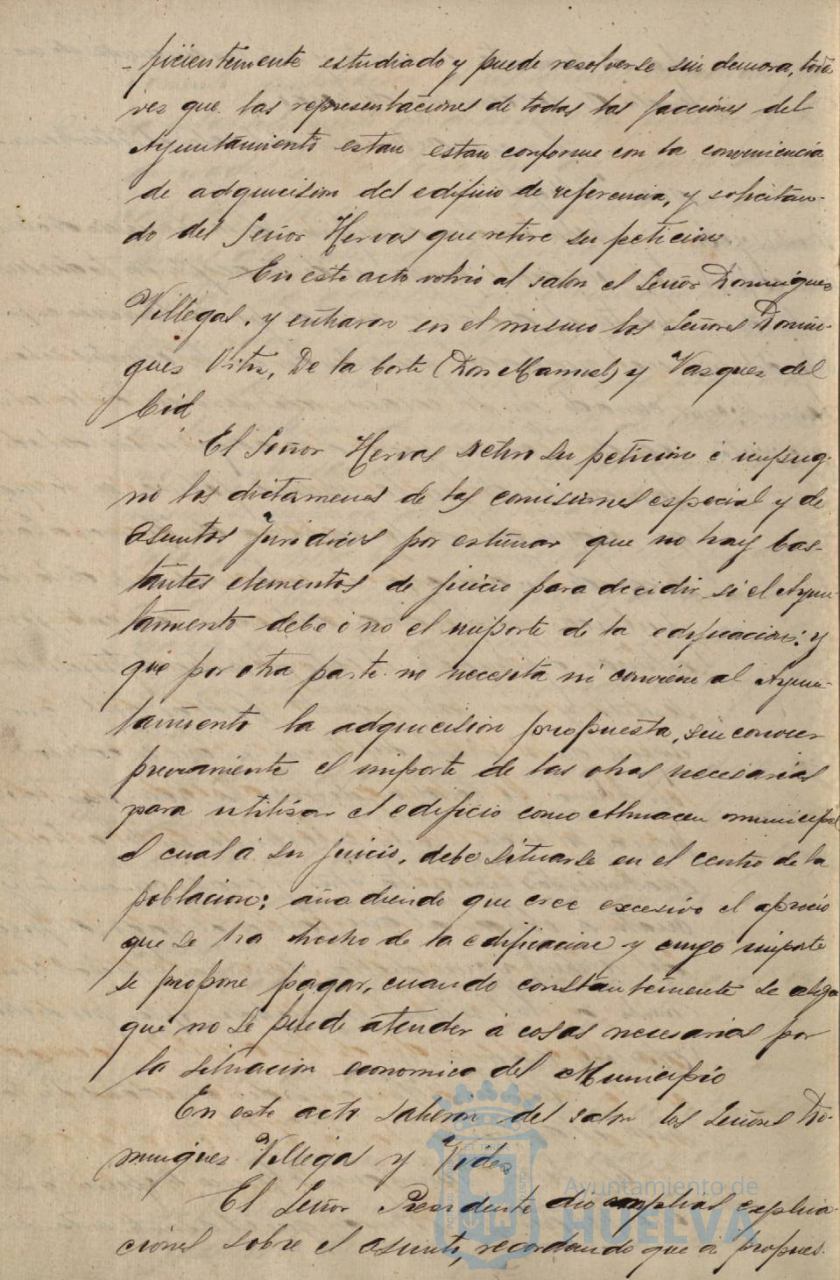 -ficientemente estudiado y puede resolverse sin demora, toda
vez que las representaciones de todas las facciones del
Ayuntamiento estan estan conforme con la conveniencia
de adquicision del edificio de referencia, y solicitan-
do del Señor Hervas que retire su peticion
En este acto volvió al salon el Señor Dominguez
Villegas, y entraron en el mismo los Señores Domin-
guez, De la Corte (Don Manuel) y Vazquez del
Cid
El Señor Hervas retiro su peticion é impug-
nó los dictamenes de las comisiones especial y de
Asuntos juridicos por estimar que no hay bas-
tantes elementos de juicio para decidir si el Ayun-
tamiento debe ó no el importe de la edificacion: y
que por otra parte no necesita ni conviene al Ayun-
tamiento la adquicision propuesta, sin conocer
previamente el importe de las obras necesarias
para utilisar el edificio como Almacen municipal
el cual á su juicio, debe situarse en el centro de la
poblacion; añadiendo que cree excesivo el aprecio
que se ha hecho de la edificacion y cuyo importe
se propone pagar, cuando constantemente se alega
que no se puede atender á cosas necesarias por
la situacion economica del Municipio
En este acto salieron del salon los Señores Do-
minguez Villegas y Vides
El Señor Presidente dió amplias explica-
ciones sobre el asunto, recordando que á propues-
Ayuntamiento de
HUELVA